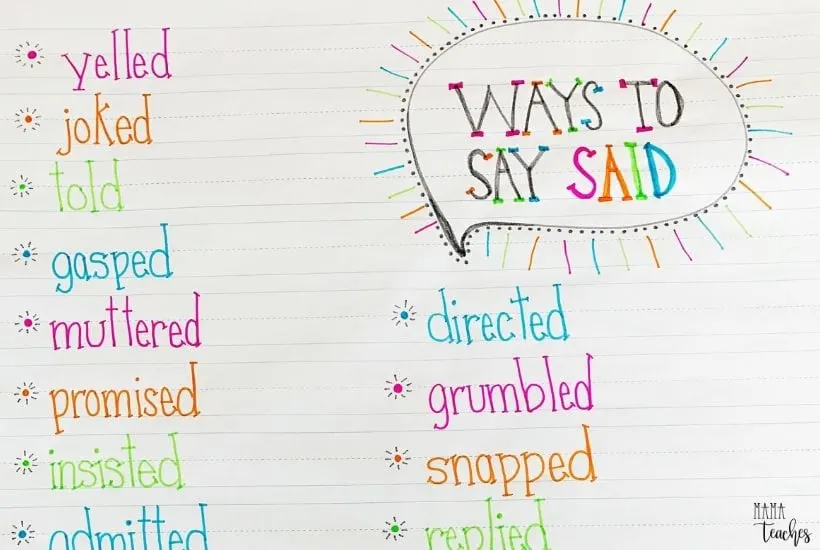 yelled
joked
told
gasped
muttered
promised
insisted
admitted
WAYS TO
SAY SAID
directed
grumbled
snapped
replied
MAMA
teaches